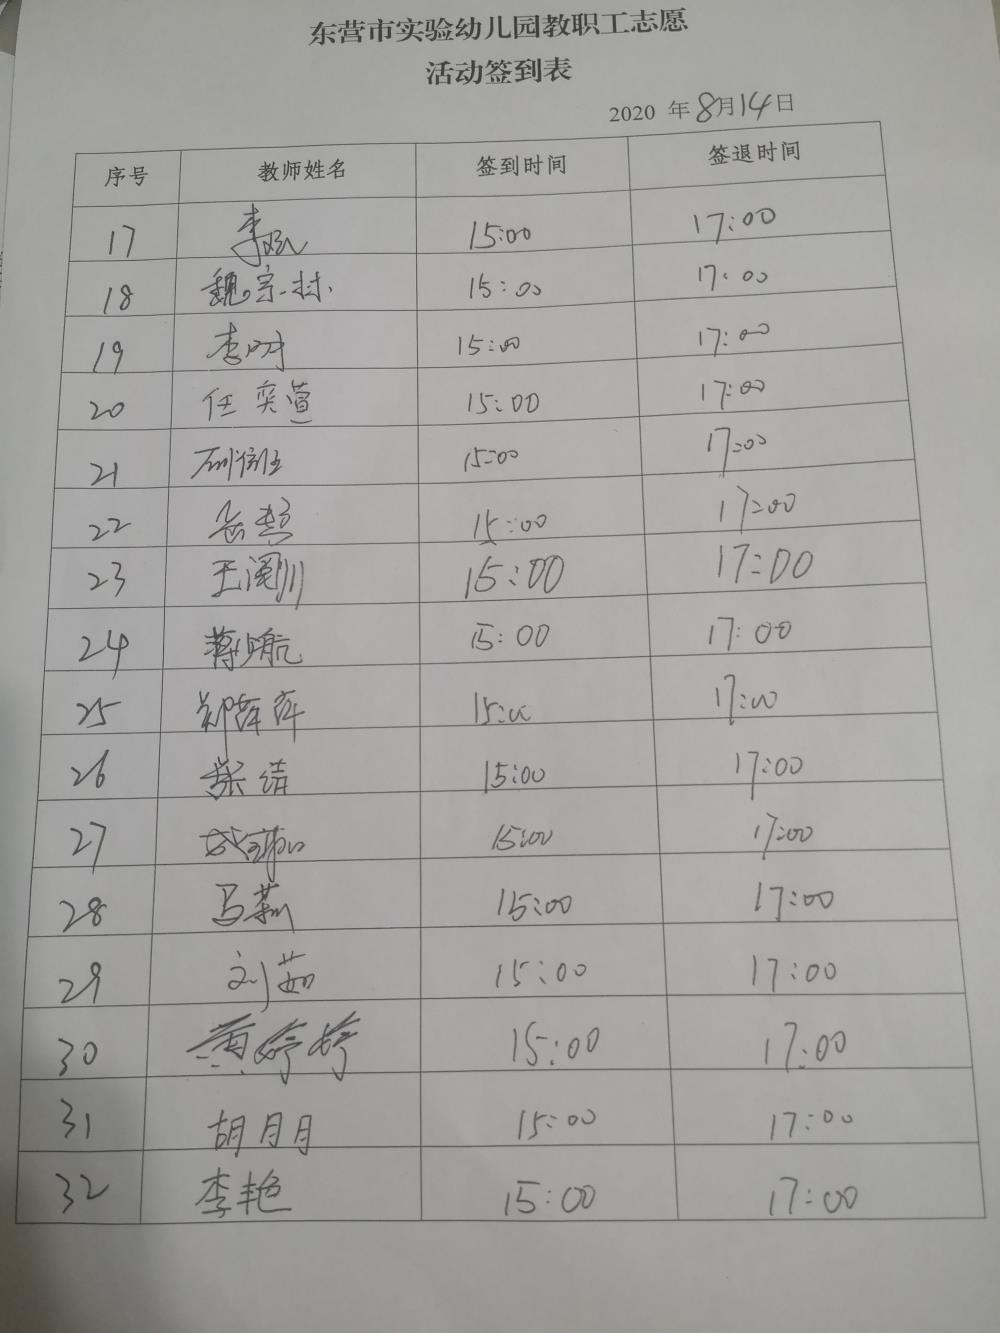 东营市实验幼儿园教职工志愿
活动签到表
2020 年8月14日
序号 教师姓名 签到时间 签退时间
17 15:00 17:00
18 魏宗林 15:00 17:00
19 李 15:00 17:00
20 任奕萱 15:00 17:00
21 15:00 17:00
22 岳慧 15:00 17:00
23 王 15:00 17:00
24 蒋晓航 15:00 17:00
25 郑萍萍 15:00 17:00
26 张 15:00 17:00
27 15:00 17:00
28 马 15:00 17:00
29 刘茹 15:00 17:00
30 黄婷婷 15:00 17:00
31 胡月月 15:00 17:00
32 李艳 15:00 17:00